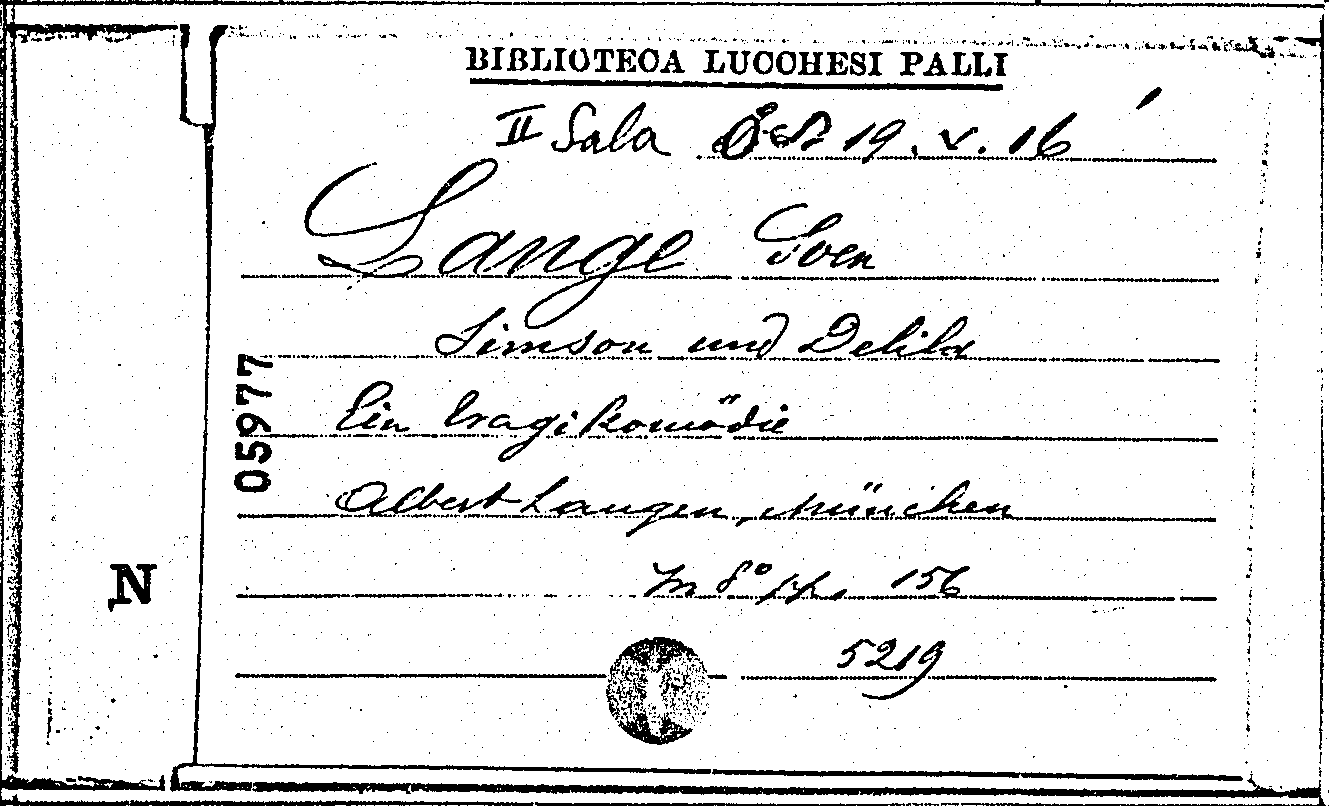 BIBLIOTECA LUCCHESI PALLI
II Sala 19. V. 16
Lange Sven
Simson und Delila
Ein tragikomödie
Albert Langen, München
In 8° pp. 156
5219
05977
N